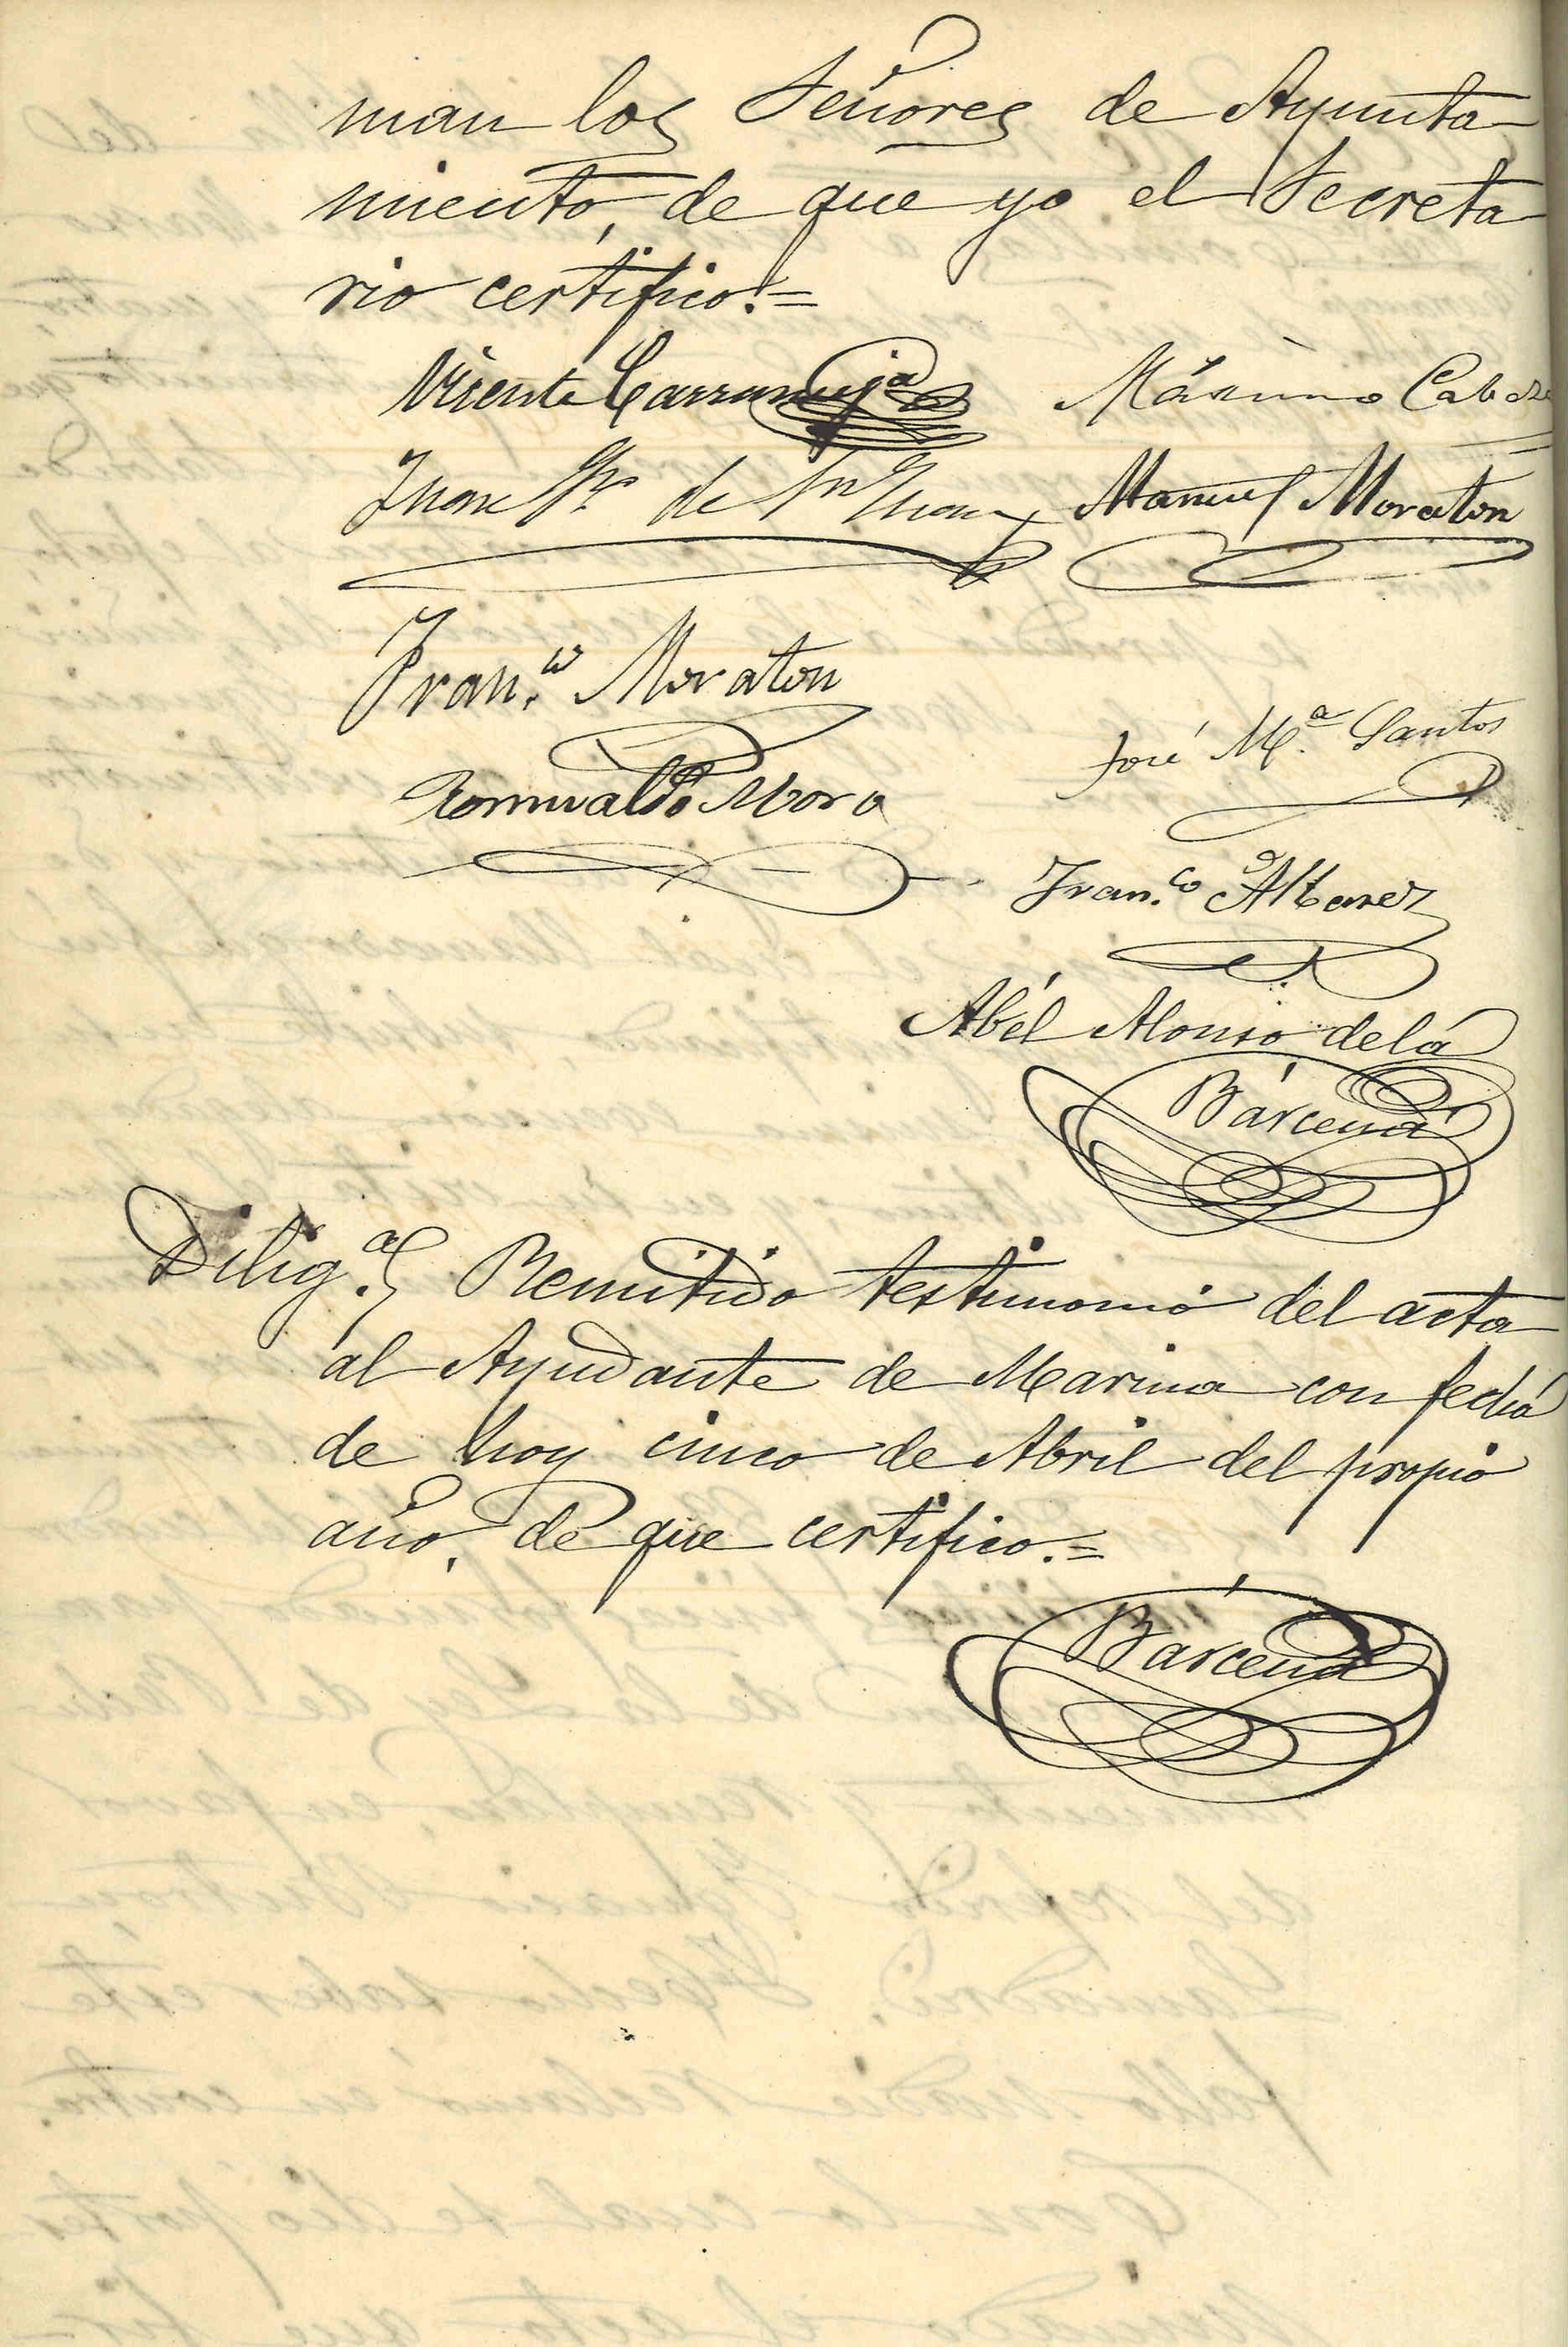 man los Señores de Ayunta
miento, de que yo el Secreta
rio certifico.=
Vicente Carranceja Máximo Cabeza
Juan Gz de Sn Juan Manuel Moraton
Fran.co Moraton
José M.ª Santos
Romualdo Mora
Fran.co Albarez
Abél Alonso de la
Bárcena
Dilig.ª Remitido testimonio del acta
al Ayudante de Marina con fecha
de hoy cinco de Abril del propio
año, de que certifico.=
Bárcena